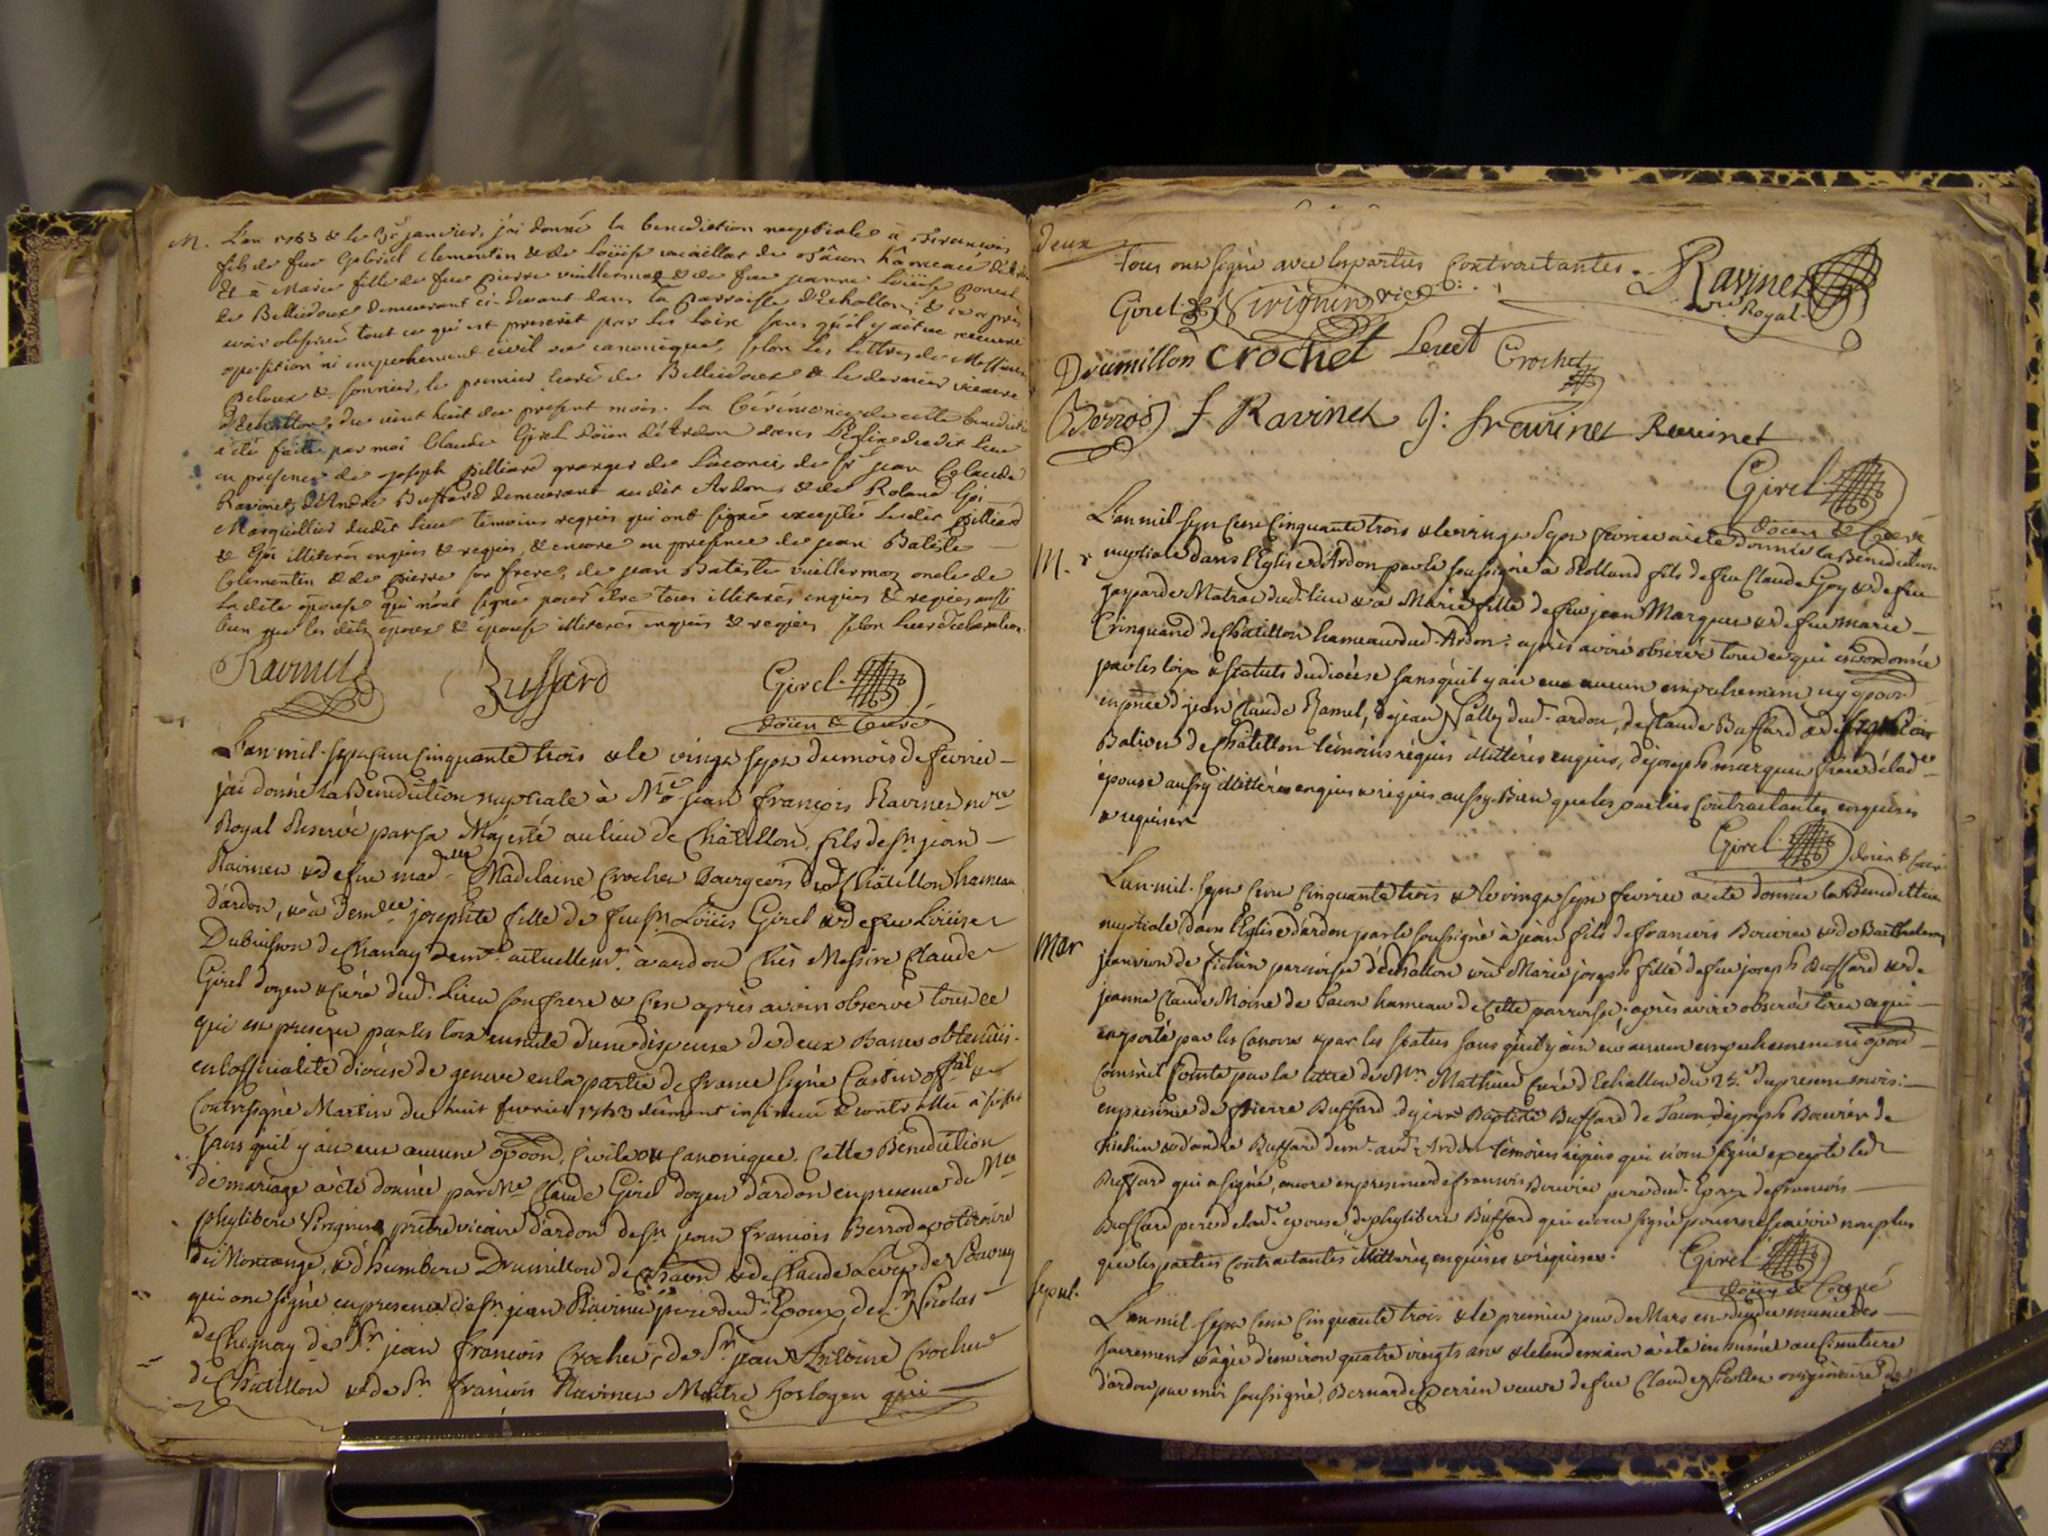 M. L'an 1753 & le 31e janvier, j'ai donné la benediction nuptiale à francois
fils de feu Gabriel Clementin & de Loüise vuaillat de Tâcon hâmeau d'Ardon
Et à Marie fille de feu pierre vuillermoz & de feue jeanne Loüise ponsel
de Belledoux demeurant ci devant dans la parroisse d'Echallon, & ce après
avoir observé tout ce qui est prescrit par les loix sans qu'il y ait eu
oposition ni empechement civil ou canonique, selon les lettres de Messieurs
& Sonnier, le premier curé de Belledoux & le dernier vicaire
d'Echallon, du vint huit du present mois. La Cérémonie de cette benediction
a été faite par moi Claude Girel doïen d'Ardon dans l'Eglise dudit Lieu
en presence de joseph pilliard granger de de Sr jean Claude
Ravinet, d'André Buffard demeurant audit Ardon & de Roland Goi
Marguillier dudit Lieu temoins requis qui ont signé exceptés ledit pilliard
& Goi illiterés enquis & requis, & encore en presence de jean Batiste
Clementin & de pierre son frere, de jean Batiste vuillermoz oncle de
La dite épouse qui n'ont signé pour être tous illiterés enquis & requis aussi
bien que les dits époux & épouse illiterés enquis & requis selon leur déclaration.
Ravinet Buffard Girel
doïen & Curé
L'an mil sept cent cinquante trois & le vingt sept du mois de fevrier
j'ai donné la Benediction nuptiale à Me jean françois Ravinet nre
Royal Reservé par sa Majesté au lieu de Châtillon, fils de sr jean
Ravinet & de feue madlle Madelaine Crochet Bourgeois dud Châtillon hameau
d'ardon, & à demlle josephte fille de feu sr Loüis Girel & de feue Loüise
Dubuisson de Chanay demte actuellemt à ardon chès Messire Claude
Girel doyen & Curé dud. Lieu son frere & C'est après avoir observé tout ce
qui est prescrit par les loix ensuite d'une dispense de deux Bancs obtenües
en l'officialité diocèse de geneve en la partie de france signé Castin offal &
Contresigné Martin du huit fevrier 1753 düment insinué & controllé à
sans qu'il y ait eu aucune opoon, Civile ou Canonique. Cette Benediction
de mariage a été donnée par Me Claude Girel doyen d'ardon en presence de Me
phylibert Virignin prêtre vicaire d'ardon de sr jean francois Berrod
de Montange, & d'humbert Drumillon de & de Claude Levet de
qui ont signé en presence de sr jean Ravinet pere dud. Epoux, de sr Nicolas
de Chapnay de Sr jean francois Crochet, de Sr jean Antoine Crochet
de Châtillon & de Sr francois Ravinet Maitre horloger qui
deux
tous ont signé avec les parties Contraitantes. Ravinet
nre Royal
Girel Virignin vice
Drumillon Crochet Levet Crochet
Berrod f Ravinet J: Ravinet
Girel
doïen & Curé
L'an mil sept Cent Cinquante trois & le vingt Sept fevrier a été donnée la Benediction
M. nuptiale dans l'Eglise d'Ardon par le soussigné à Rolland fils de feu Claude Goy & de feue
gasparde Matras dud. lieu & à Marie fille de feu jean Marquet & de feue marie
Crinquand de Châtillon hameau dud. Ardon. après avoir observé tout ce qui est ordonné
par les loix & statuts du diocèse sans qu'il y ait eu aucun empechement ny opoon
en pnce de jean Claude Ramel, de jean Nallet dud. ardon, de Claude Buffard &
Balivet de Châtillon témoins réquis illitterés enquis, de joseph marquet frere de lade
épouse aussy illitteré enquis & requis aussy Bien que les parties Contraitantes enquises
& requises
Girel doien & Curé
L'an mil sept Cent Cinquante trois & le vingt sept fevrier a été donnée la Benediction
Mar nuptiale dans l'Eglise d'ardon par le soussigné à jean fils de francois Bouvier & de
de parroisse d'échallon & à Marie joseph fille de feu joseph Buffard & de
jeanne Claude Moine de Tacon hameau de Cette parroisse. après avoir observé tout ce qui
est porté par les Canons & par les Statuts sans qu'il y ait eu aucun empechement ni opoon
Comm'il Conste par la lettre de Mr Mathieu Curé d'Echallon du 25. du present mois.
en presence de pierre Buffard de jean Baptiste Buffard de Tacon de joseph Bouvier de
& d'andré Buffard demt. aud. Ardon témoins requis qui n'ont signé excepté led
Buffard qui a signé, encore en presence de francois Bouvier pere dud. Epoux de francois
Buffard pere de lad. epouse, de phylibert Buffard qui n'ont signé pour ne scavoir non plus
que les parties Contraitantes illitterées, enquises & requises.
Girel
doïen & Curé
Sepul. L'an mil sept Cent Cinquante trois & le premier jour de Mars est munie des
Sacremens & agée d'environ quatre vingts ans & le lendemain a été inhumée au Cimetiere
d'ardon par moi soussigné, Bernarde Perrin veuve de feu Claude Nicollet originaire de